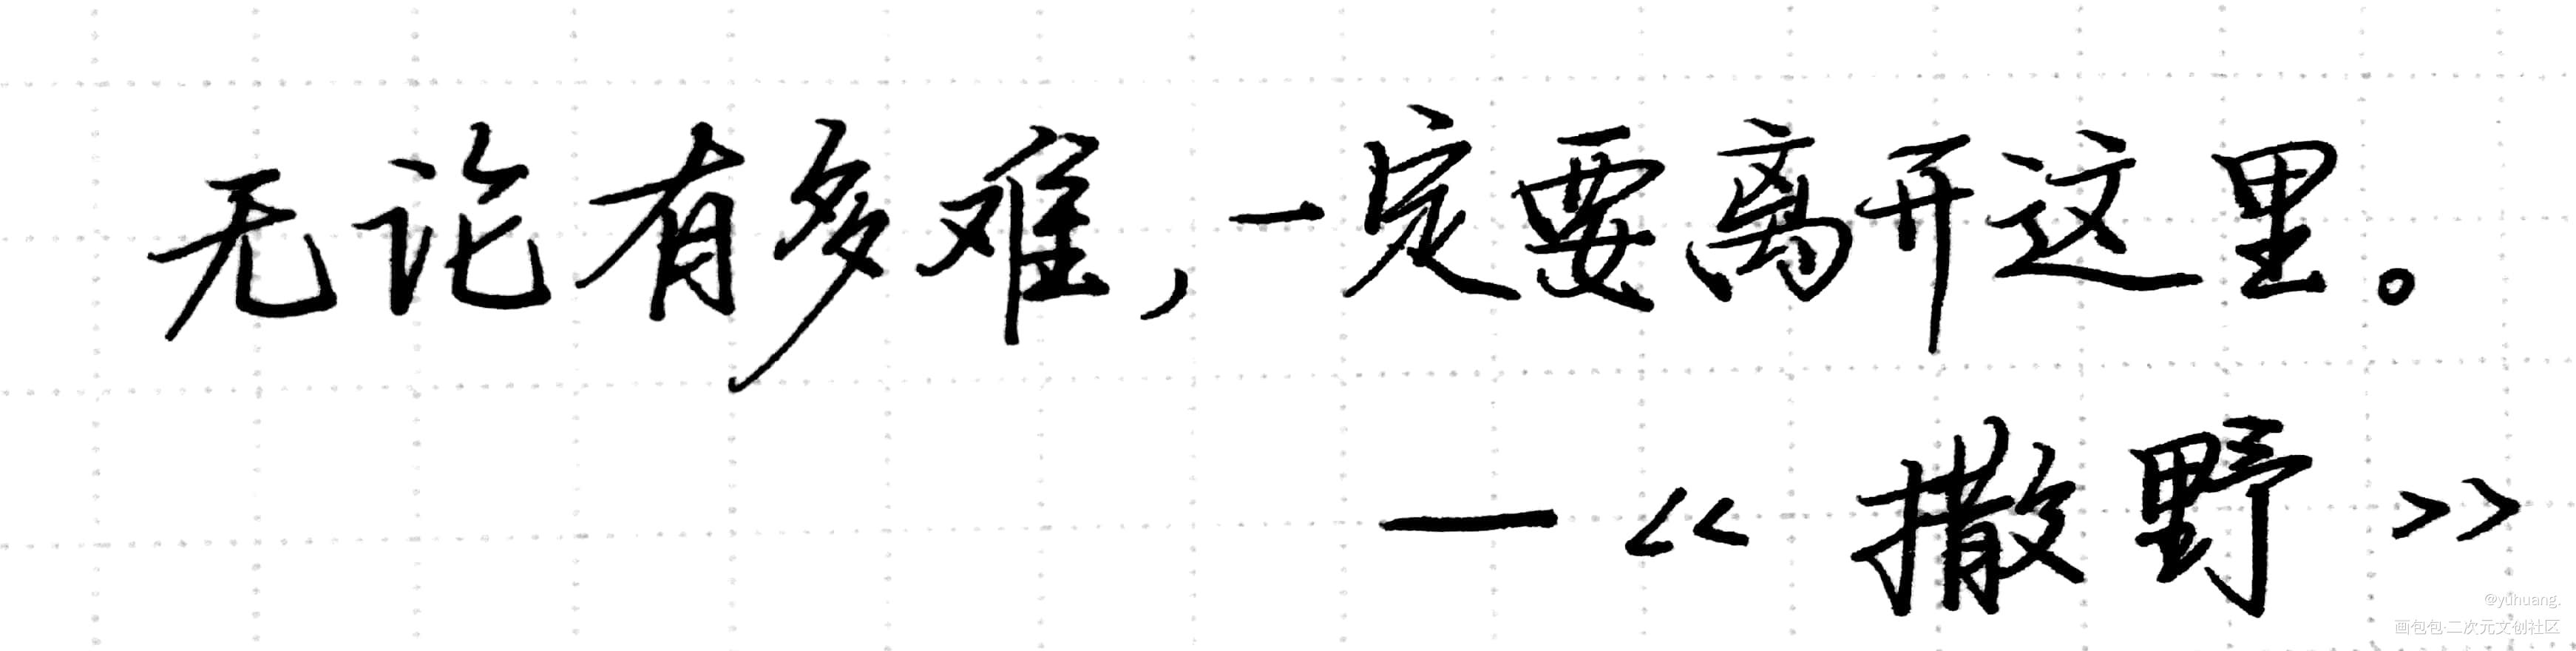 无论有多难，一定要离开这里。
—《撒野》
@yuhuang.
画包包·二次元文创社区